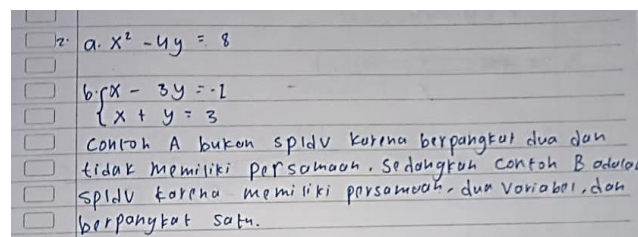 2. a. x² - 4y = 8
b. { x - 3y = -1
x + y = 3
Contoh A bukan spldv karena berpangkat dua dan
tidak memiliki persamaan. Sedangkan contoh B adalah
spldv karena memiliki persamaan, dua variabel, dan
berpangkat satu.